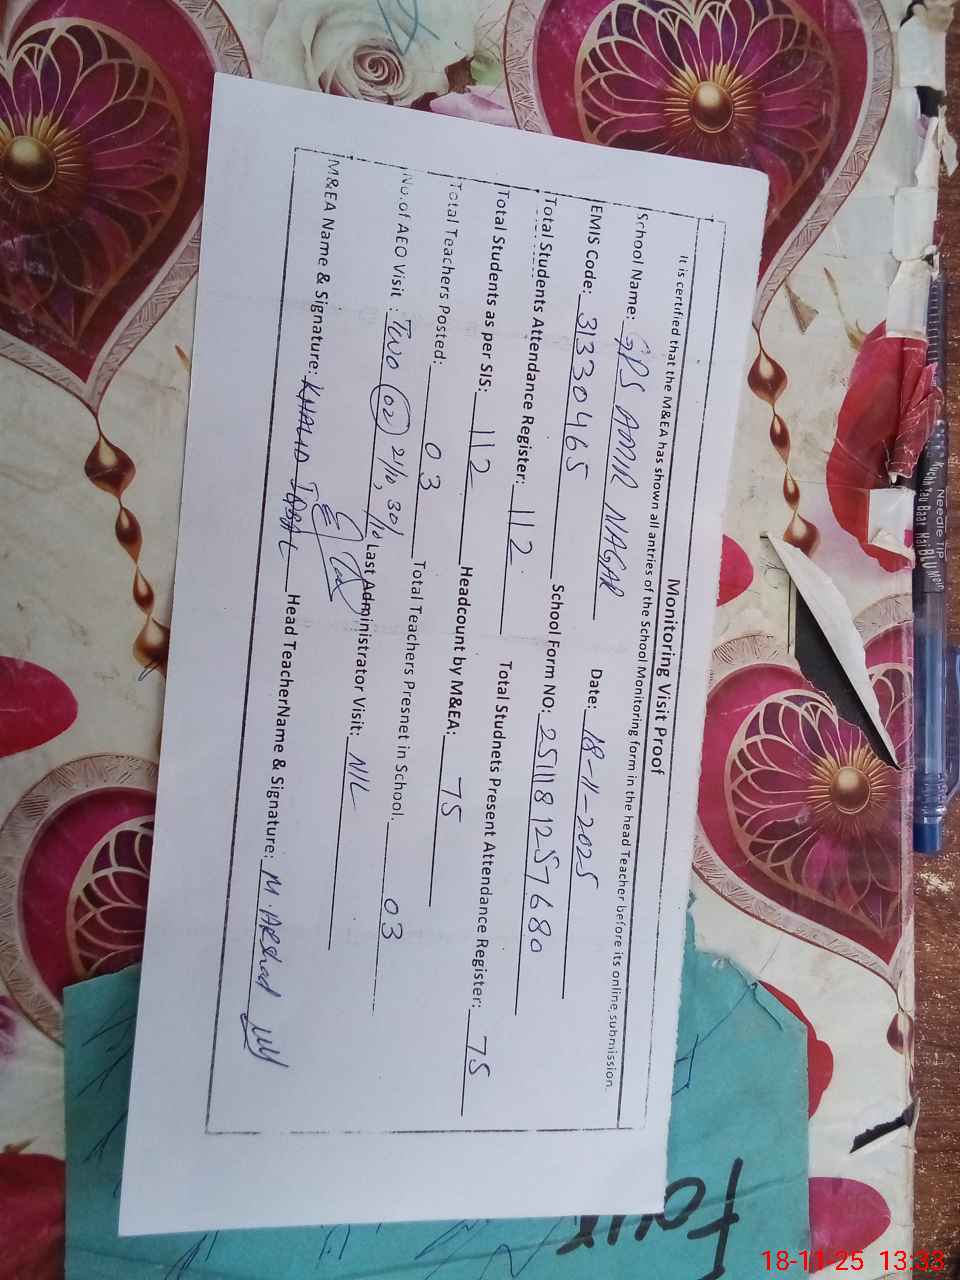 Monitoring Visit Proof
It is certified that the M&EA has shown all antries of the School Monitoring form in the head Teacher before its online submission.
School Name: GPS AMIR NAGAR Date: 18-11-2025
EMIS Code: 31330465 School Form NO: 2511181257680
Total Students Attendance Register: 112 Total Studnets Present Attendance Register: 75
Total Students as per SIS: 112 Headcount by M&EA: 75
Total Teachers Posted: 03 Total Teachers Presnet in School. 03
No.of AEO Visit : Two (02) 21/10, 30/10 Last Administrator Visit: NIL
M&EA Name & Signature: KHALID IQBAL Head TeacherName & Signature: M. ARShad
Four
Needle TIP
Kuchh Tau Baat Hai BLU
18-11-25 13:33